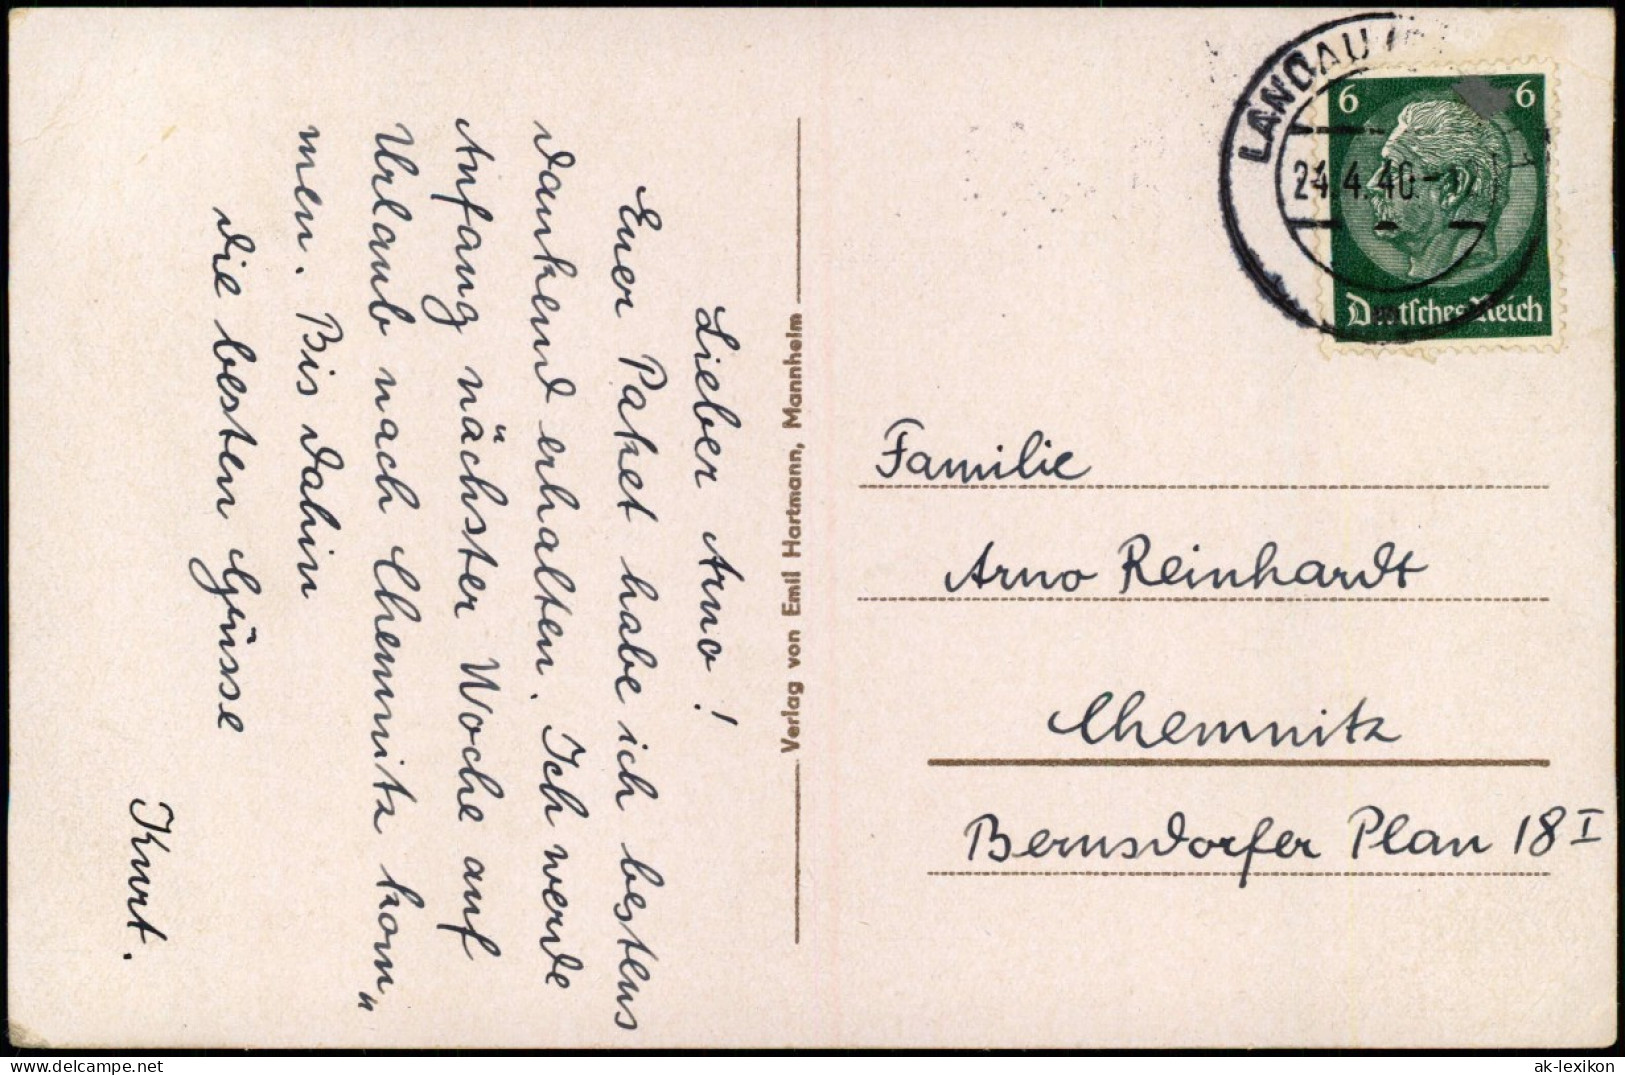 Lieber Arno!
Euer Paket habe ich bestens
dankend erhalten. Ich werde
Anfang nächster Woche auf
Urlaub nach Chemnitz kom„
men. Bis dahin
die besten Grüsse
Kurt.
Verlag von Emil Hartmann, Mannheim
LANDAU
24.4.40.-12
6 6
Deutsches Reich
Familie
Arno Reinhardt
Chemnitz
Bernsdorfer Plan 18 I
www.ansichtskarten-lexikon.de
ak-lexikon